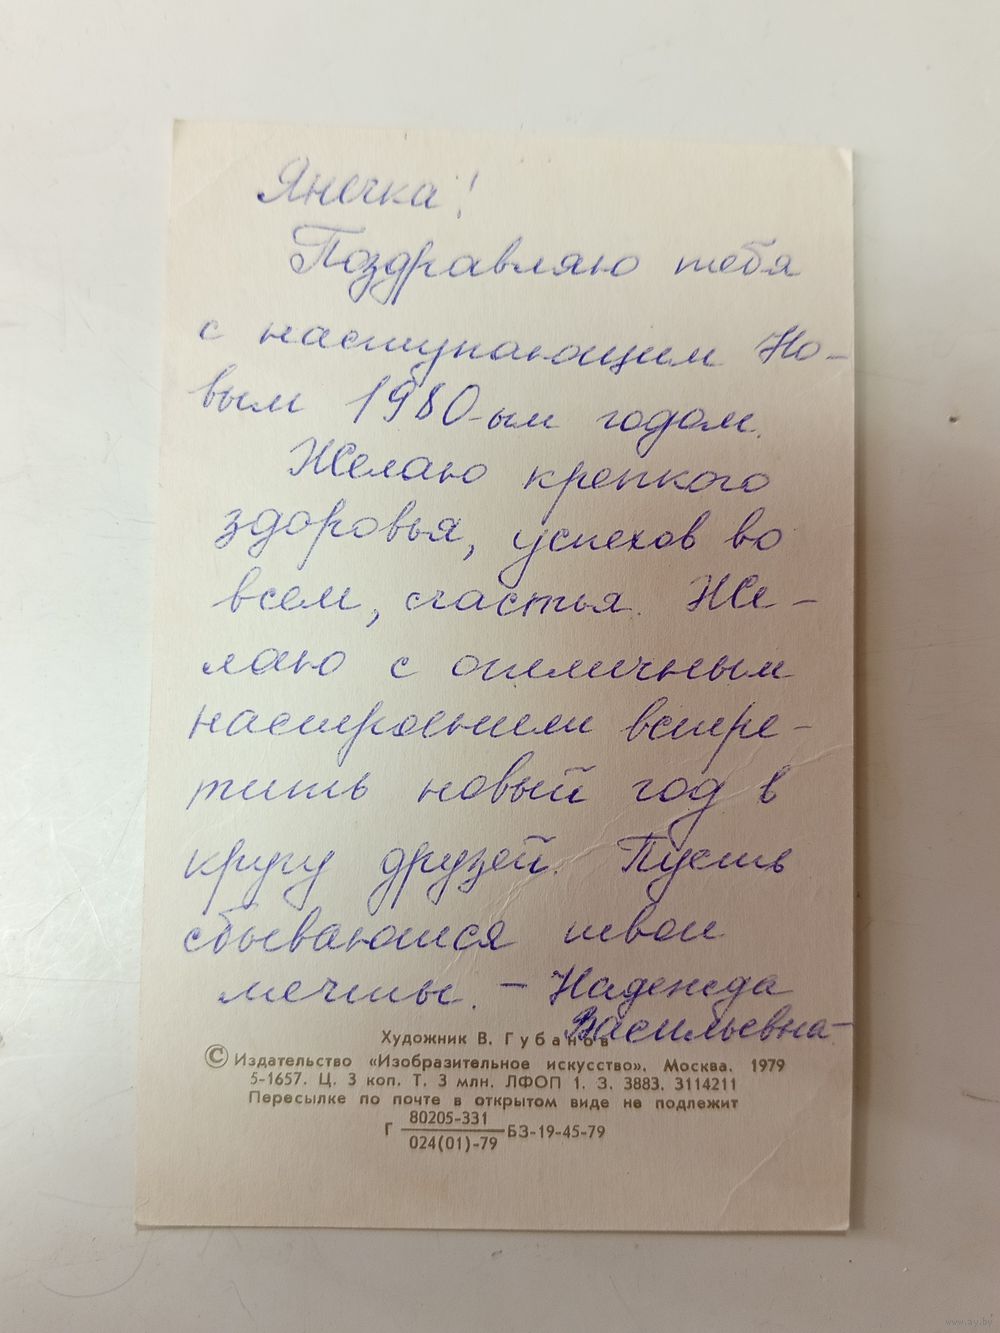 Янечка!
Поздравляю тебя
с наступающим Но-
вым 1980-ым годом.
Желаю крепкого
здоровья, успехов во
всем, счастья. Же-
лаю с отличным
настроеньем встре-
тить новый год в
кругу друзей. Пусть
сбываются твои
мечты. – Надежда
Васильевна-
Художник В. Губанов
© Издательство «Изобразительное искусство». Москва. 1979
5-1657. Ц. 3 коп. Т. 3 млн. ЛФОП 1. З. 3883. 3114211
Пересылке по почте в открытом виде не подлежит
Г 80205-331
024(01)-79 БЗ-19-45-79
www.ay.by